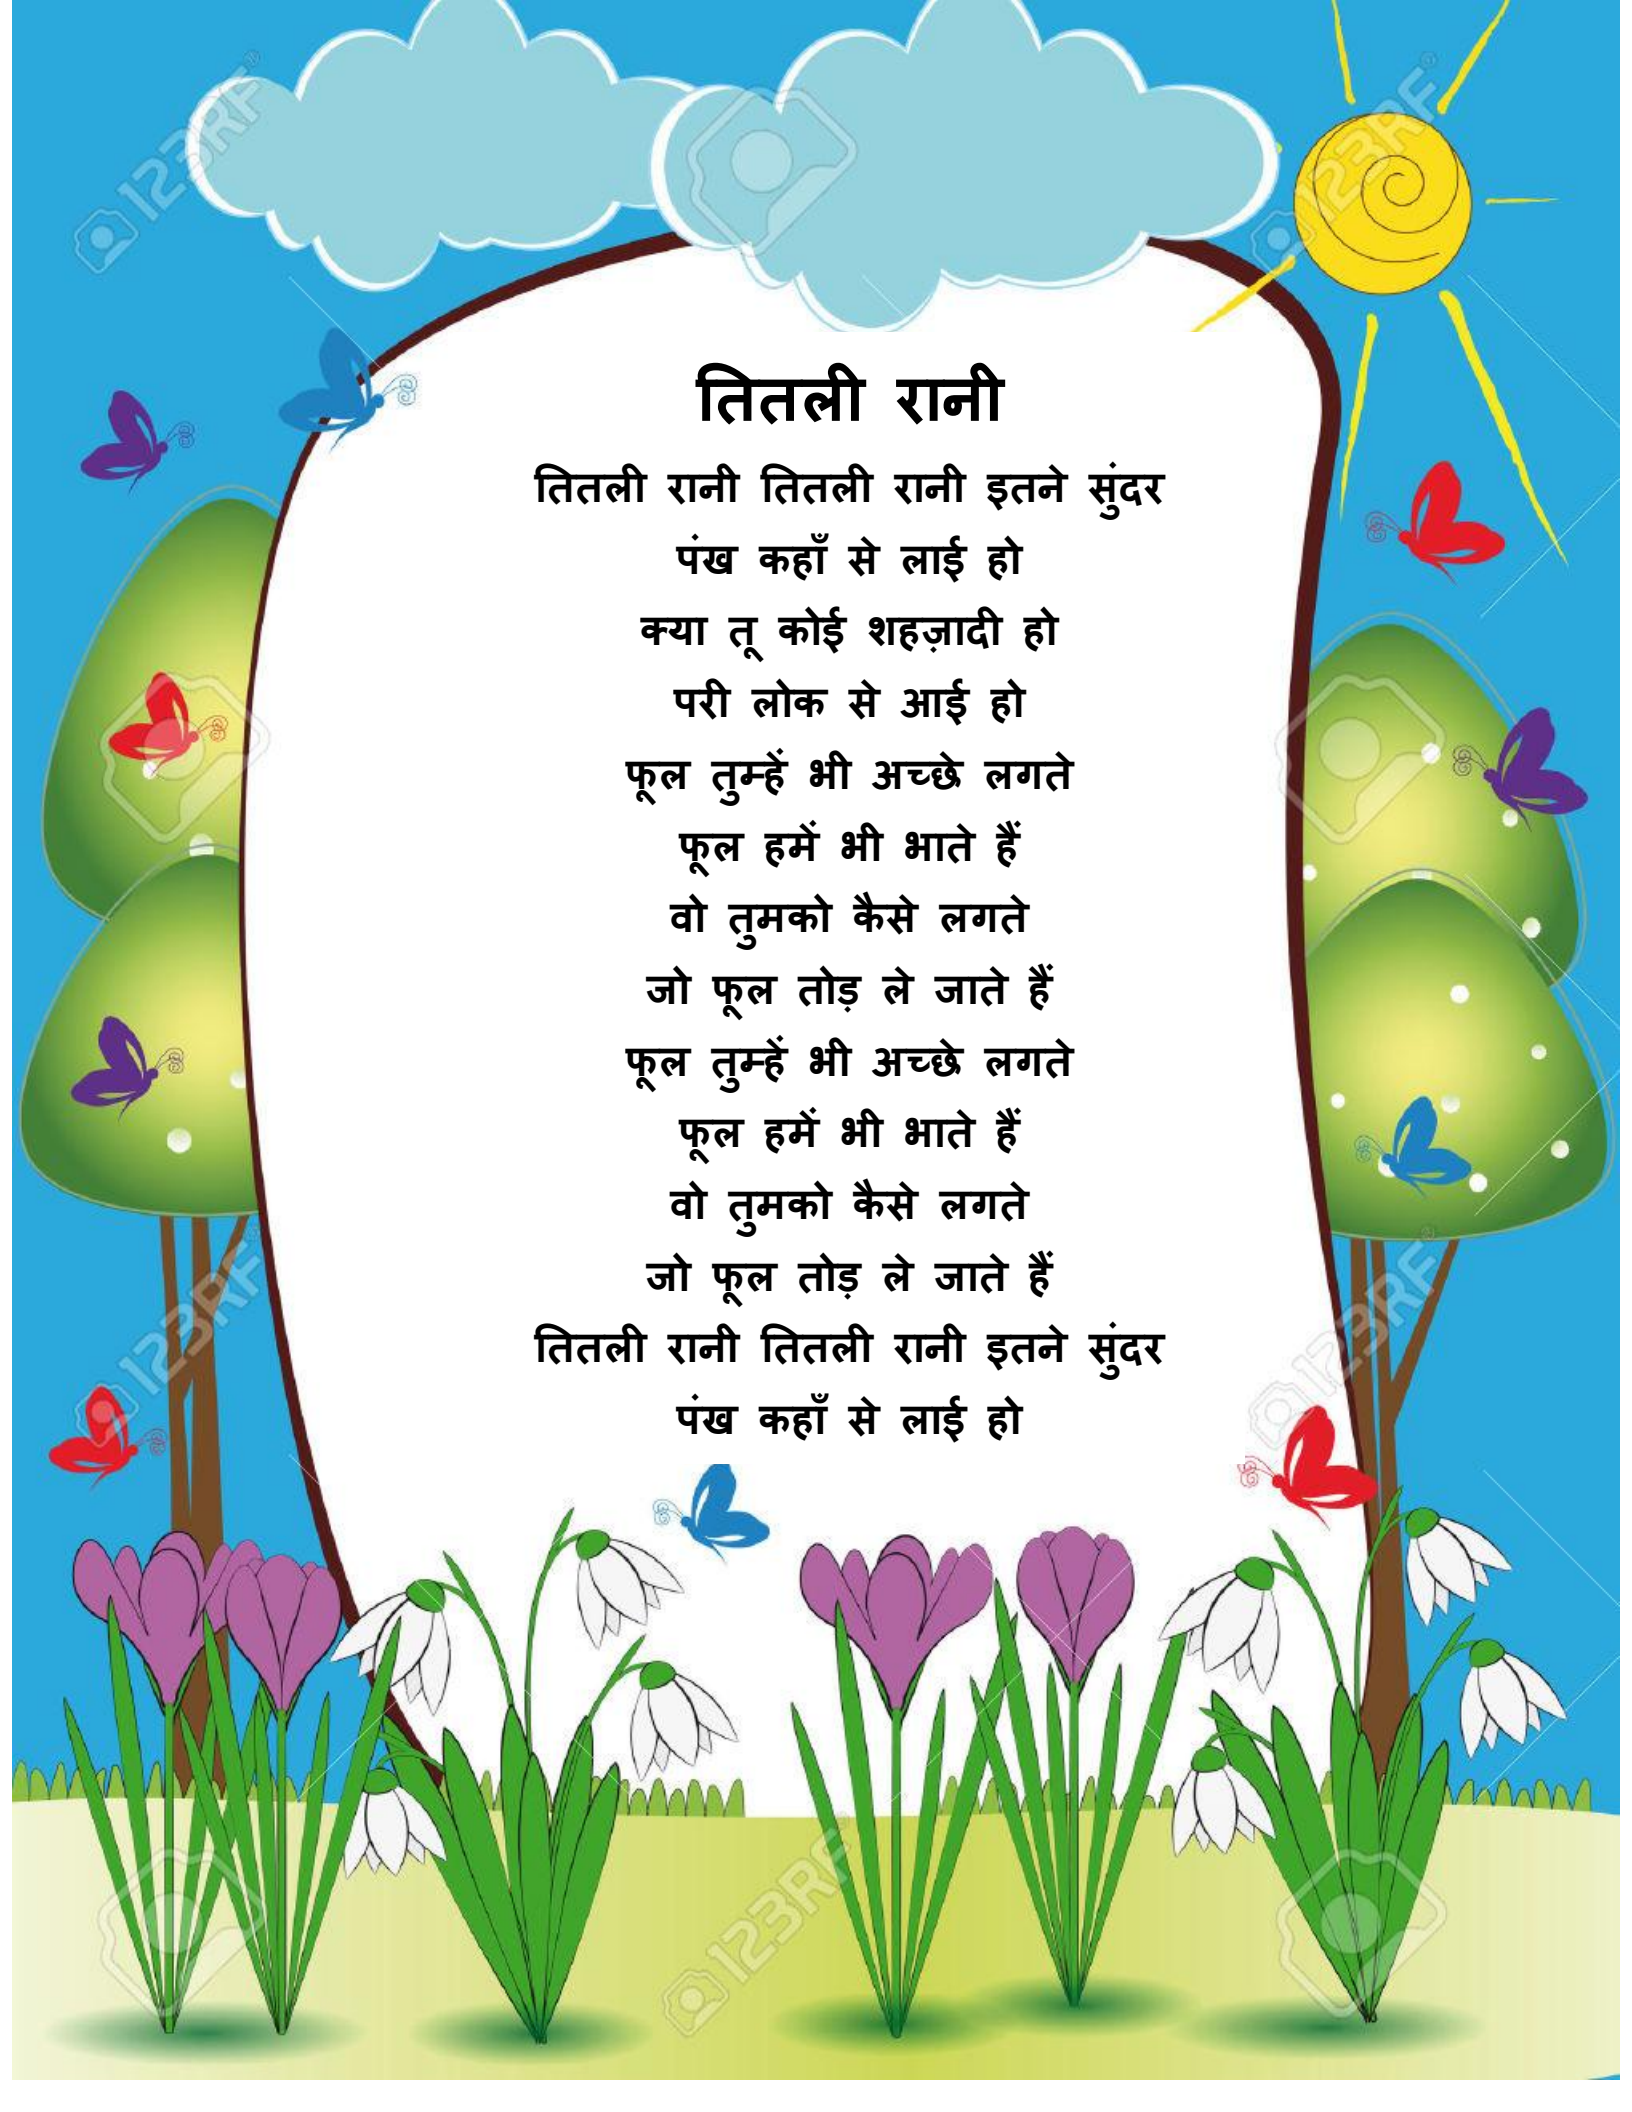 तितली रानी
तितली रानी तितली रानी इतने सुंदर
पंख कहाँ से लाई हो
क्या तू कोई शहज़ादी हो
परी लोक से आई हो
फूल तुम्हें भी अच्छे लगते
फूल हमें भी भाते हैं
वो तुमको कैसे लगते
जो फूल तोड़ ले जाते हैं
फूल तुम्हें भी अच्छे लगते
फूल हमें भी भाते हैं
वो तुमको कैसे लगते
जो फूल तोड़ ले जाते हैं
तितली रानी तितली रानी इतने सुंदर
पंख कहाँ से लाई हो
123RF
123RF
123RF
123RF
123RF